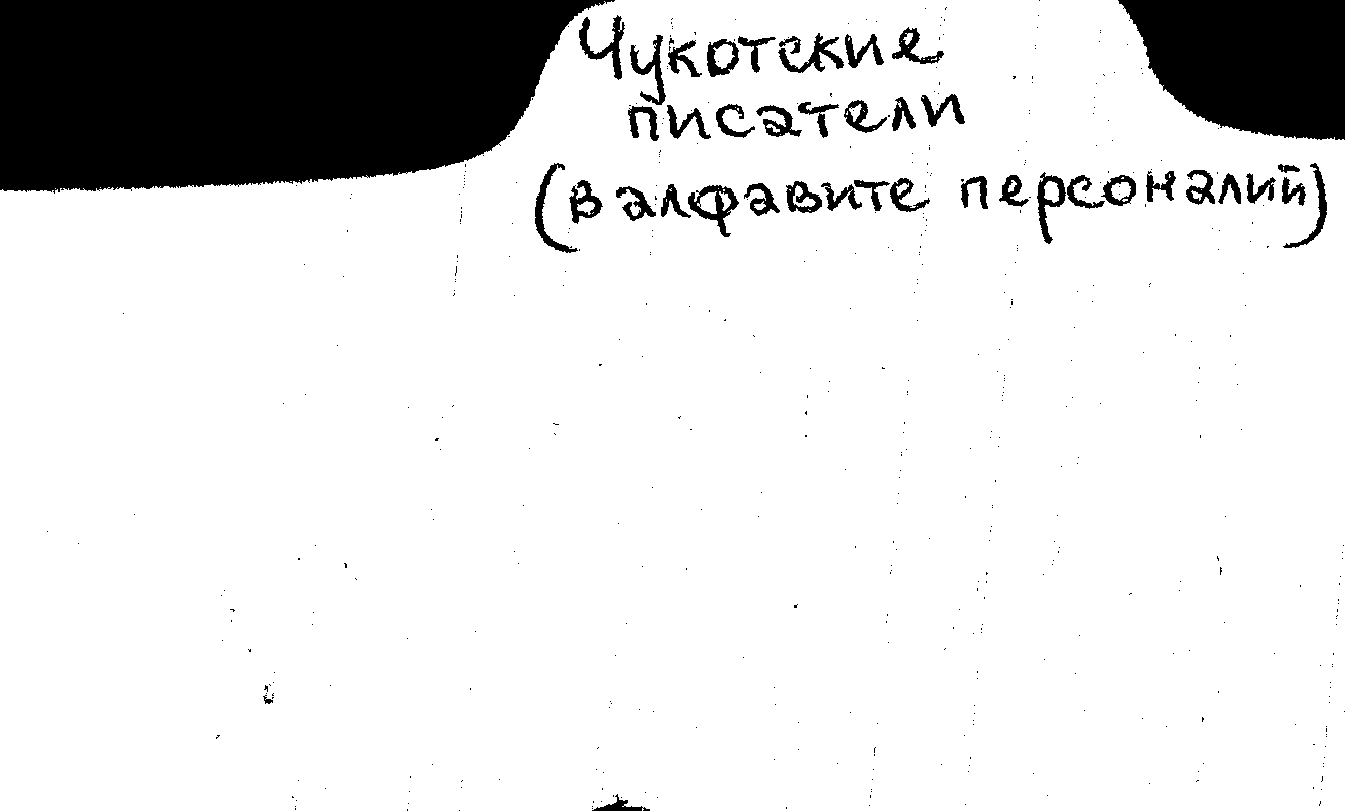 Чукотские
писатели
(в алфавите персоналий)